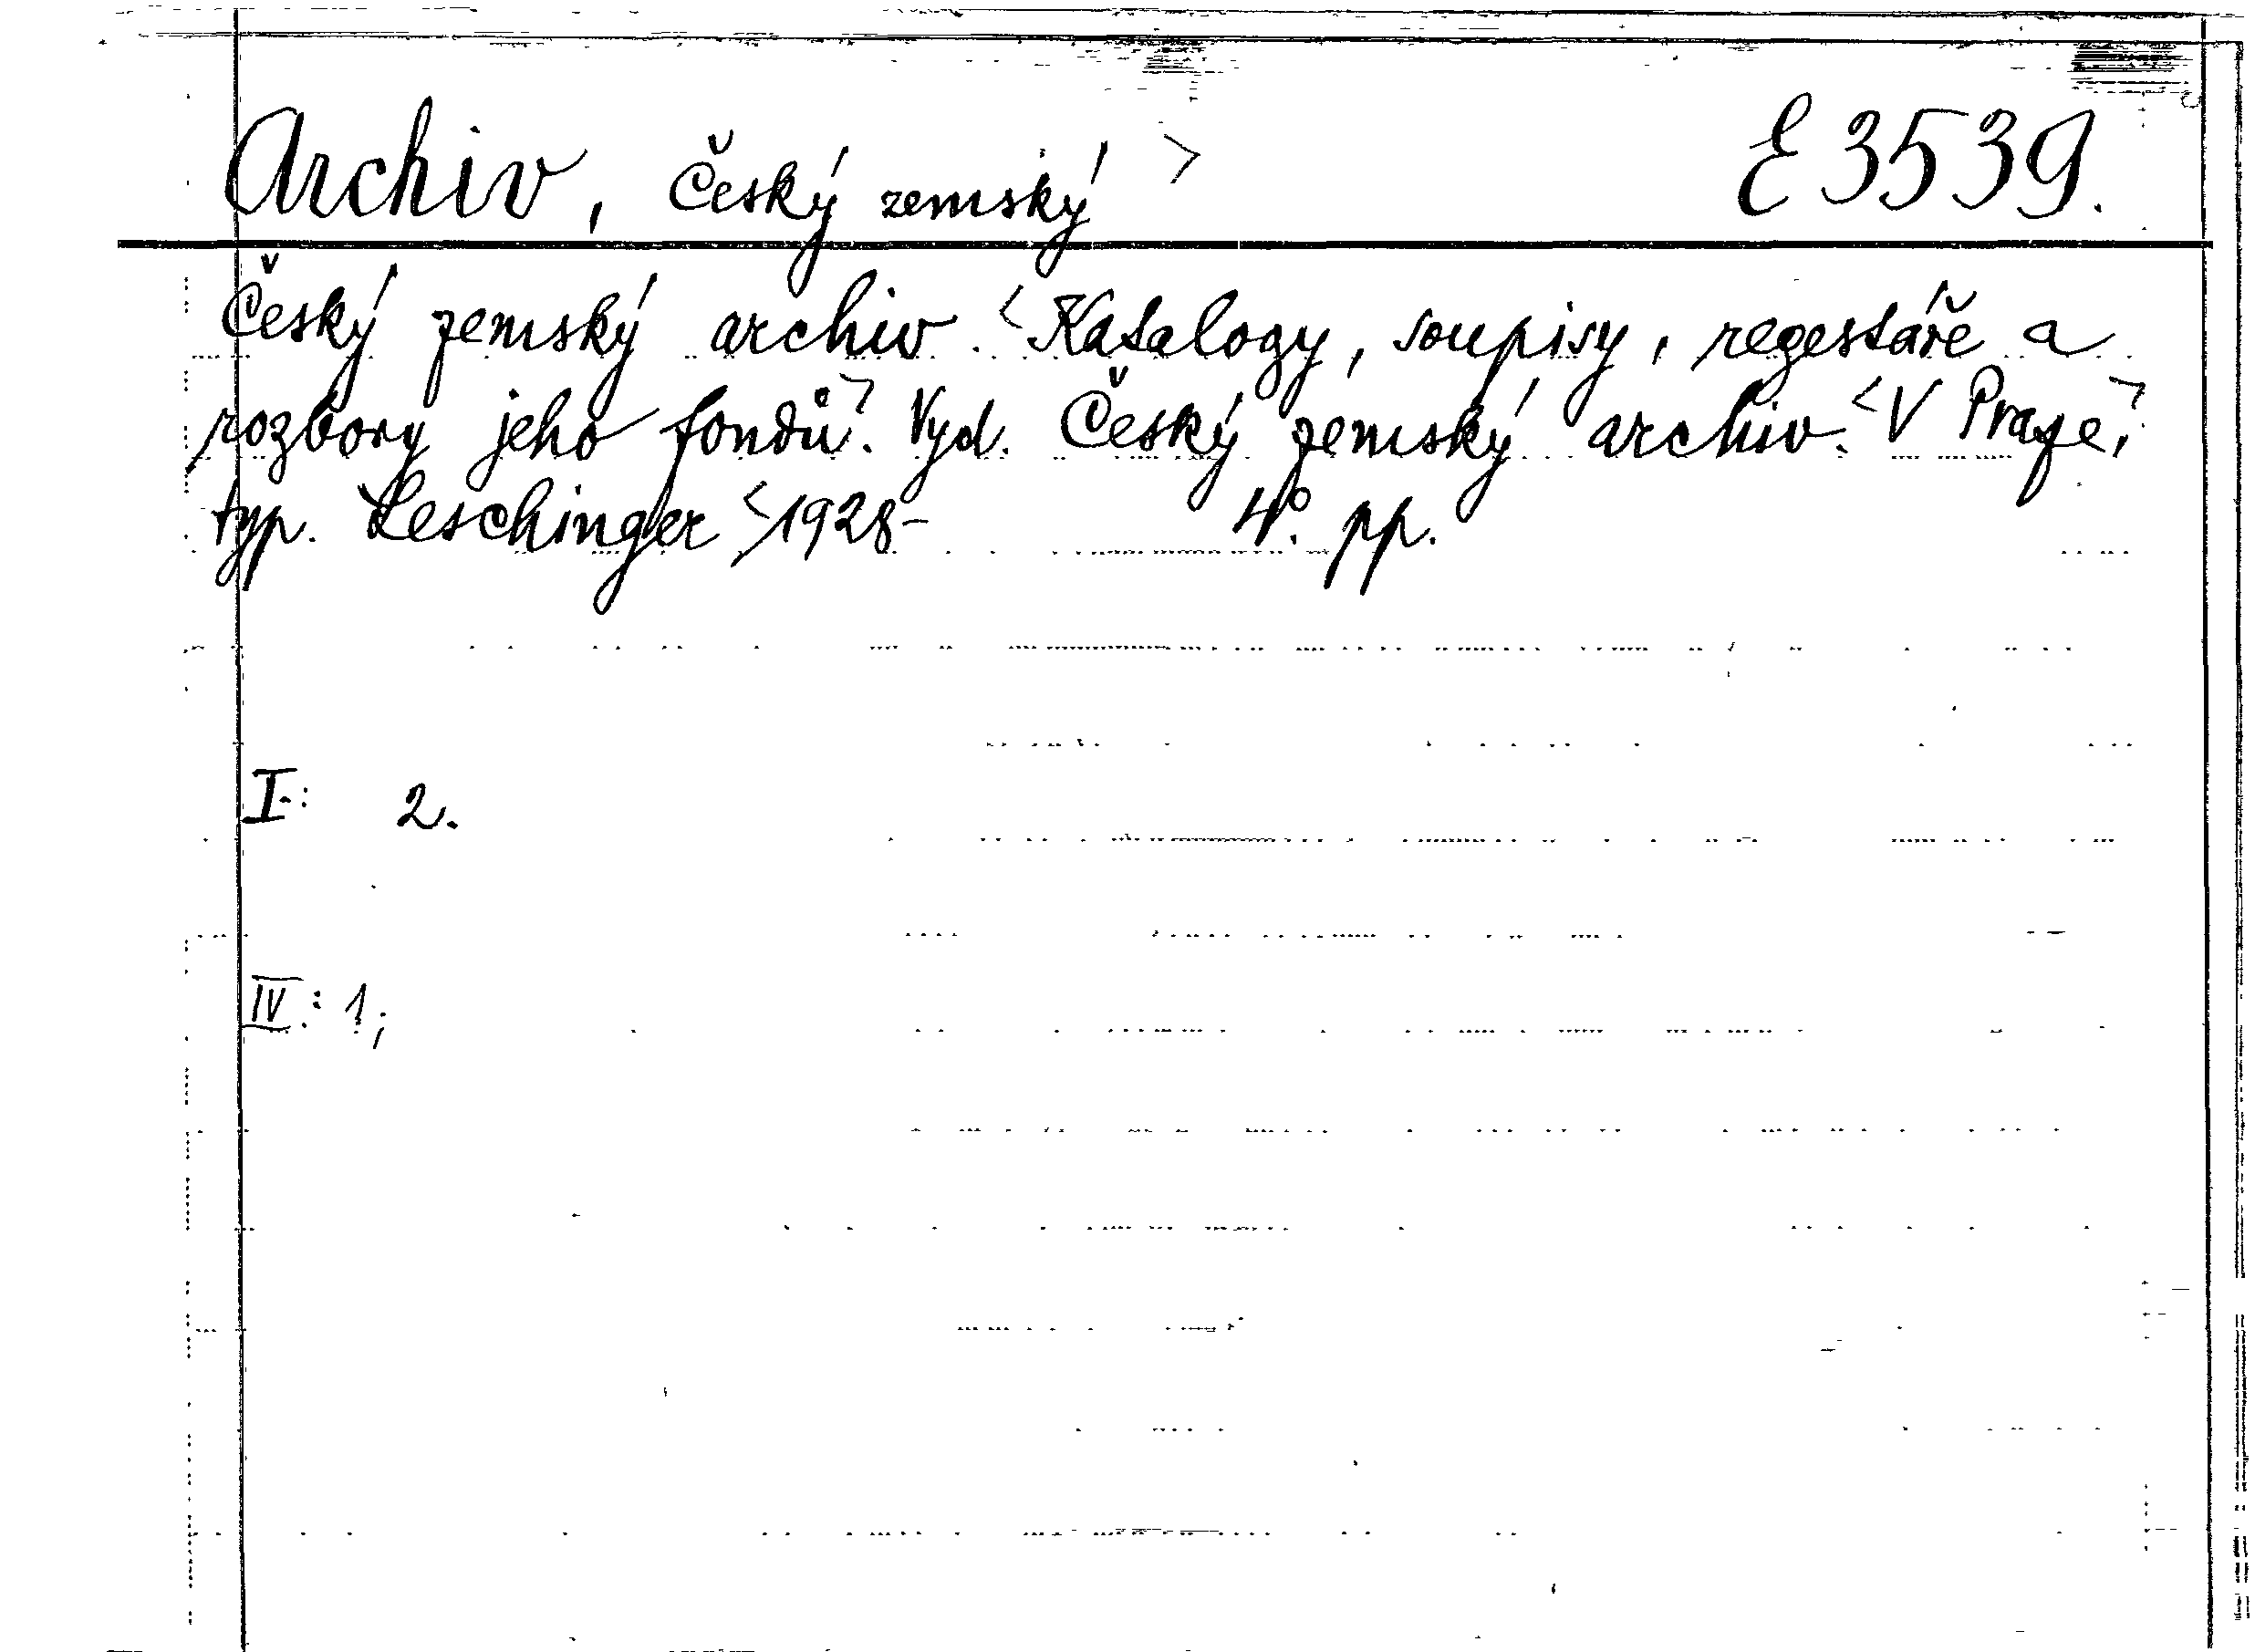 Archiv, Český zemský > E 3539.
Český zemský archiv. <Katalogy, soupisy, regestáře a
rozbory jeho fondů>. Vyd. Český zemský archiv. <V Praze>,
typ. Leschinger <1928- 4°. pp.
I.: 2.
IV.: 1;